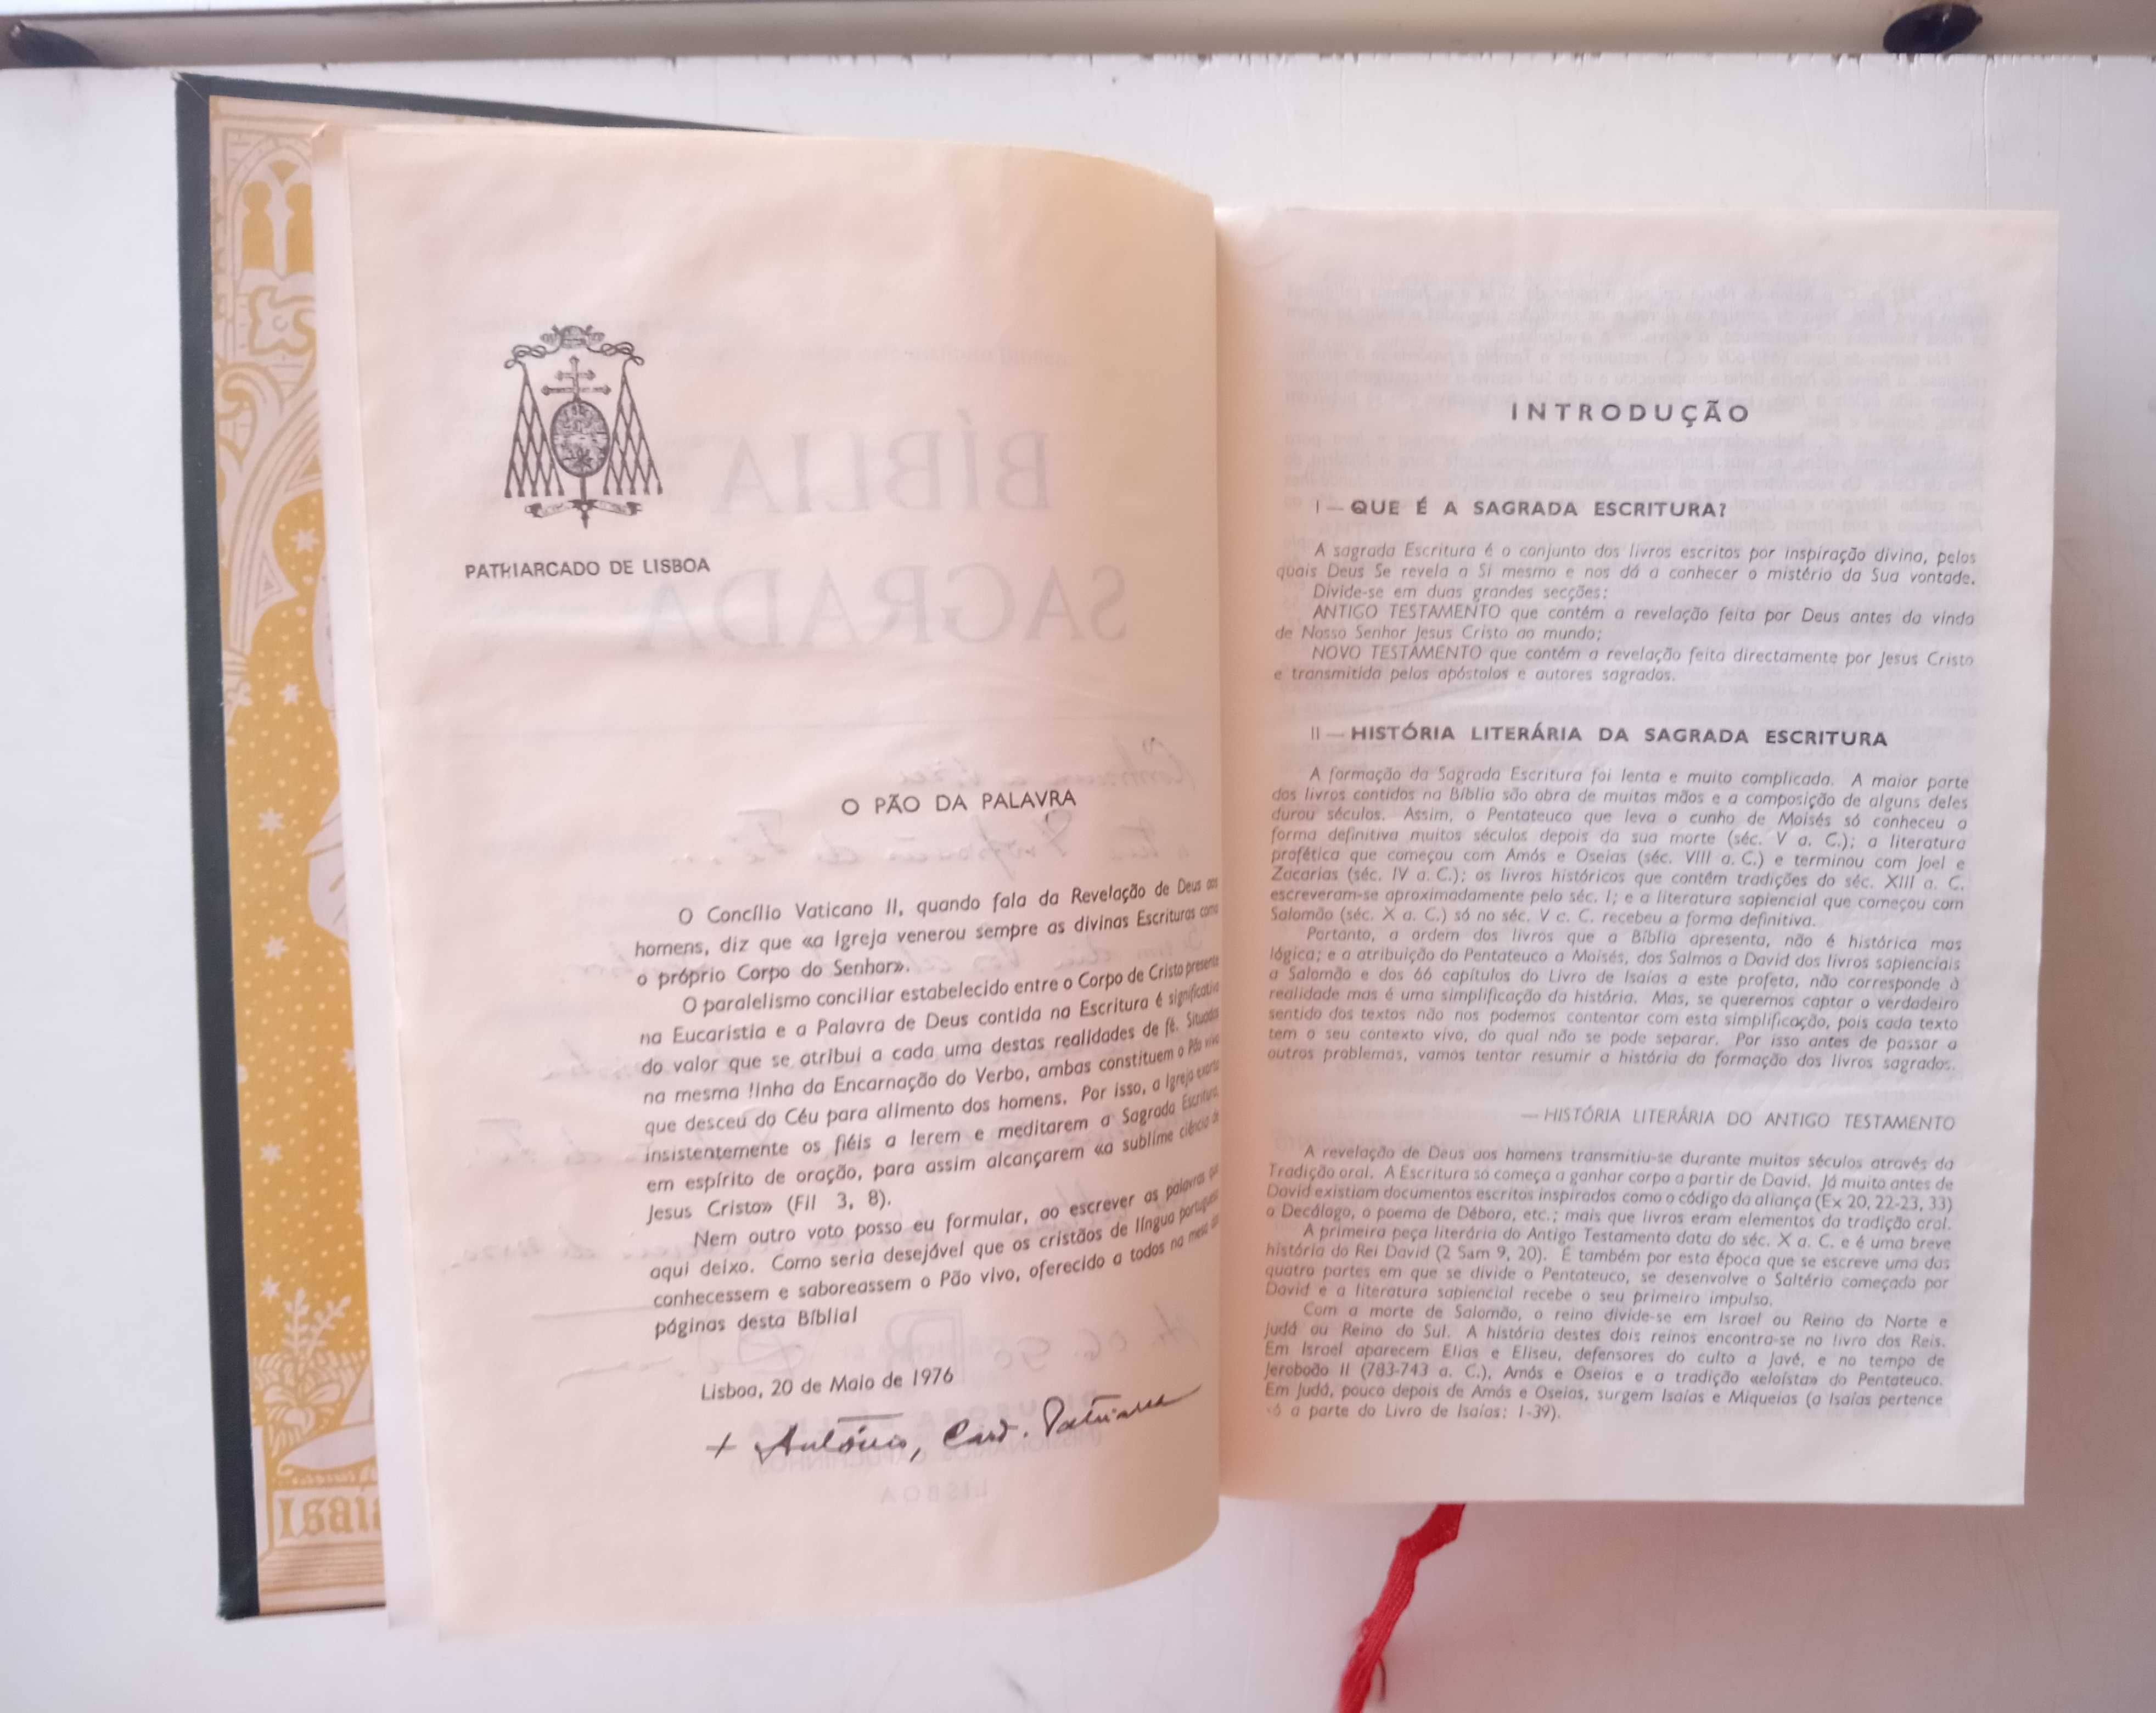 PATRIARCADO DE LISBOA
O PÃO DA PALAVRA
O Concílio Vaticano II, quando fala da Revelação de Deus aos
homens, diz que «a Igreja venerou sempre as divinas Escrituras como
o próprio Corpo do Senhor».
O paralelismo conciliar estabelecido entre o Corpo de Cristo presente
na Eucaristia e a Palavra de Deus contida na Escritura é significativo
do valor que se atribui a cada uma destas realidades de fé. Situados
na mesma linha da Encarnação do Verbo, ambas constituem o Pão vivo
que desceu do Céu para alimento dos homens. Por isso, a Igreja exorta
insistentemente os fiéis a lerem e meditarem a Sagrada Escritura,
em espírito de oração, para assim alcançarem «a sublime ciência de
Jesus Cristo» (Fil 3, 8).
Nem outro voto posso eu formular, ao escrever as palavras que
aqui deixo. Como seria desejável que os cristãos de língua portuguesa
conhecessem e saboreassem o Pão vivo, oferecido a todos na mesa das
páginas desta Bíblia!
Lisboa, 20 de Maio de 1976
+ António, Card. Patriarca
Isaí
INTRODUÇÃO
I — QUE É A SAGRADA ESCRITURA?
A sagrada Escritura é o conjunto dos livros escritos por inspiração divina, pelos
quais Deus Se revela a Si mesmo e nos dá a conhecer o mistério da Sua vontade.
Divide-se em duas grandes secções:
ANTIGO TESTAMENTO que contém a revelação feita por Deus antes da vinda
de Nosso Senhor Jesus Cristo ao mundo;
NOVO TESTAMENTO que contém a revelação feita directamente por Jesus Cristo
e transmitida pelos apóstolos e autores sagrados.
II — HISTÓRIA LITERÁRIA DA SAGRADA ESCRITURA
A formação da Sagrada Escritura foi lenta e muito complicada. A maior parte
dos livros contidos na Bíblia são obra de muitas mãos e a composição de alguns deles
durou séculos. Assim, o Pentateuco que leva o cunho de Moisés só conheceu a
forma definitiva muitos séculos depois da sua morte (séc. V a. C.); a literatura
profética que começou com Amós e Oseias (séc. VIII a. C.) e terminou com Joel e
Zacarias (séc. IV a. C.); os livros históricos que contêm tradições do séc. XIII a. C.
escreveram-se aproximadamente pelo séc. I; e a literatura sapiencial que começou com
Salomão (séc. X a. C.) só no séc. V c. C. recebeu a forma definitiva.
Portanto, a ordem dos livros que a Bíblia apresenta, não é histórica mas
lógica; e a atribuição do Pentateuco a Moisés, dos Salmos a David dos livros sapienciais
a Salomão e dos 66 capítulos do Livro de Isaías a este profeta, não corresponde à
realidade mas é uma simplificação da história. Mas, se queremos captar o verdadeiro
sentido dos textos não nos podemos contentar com esta simplificação, pois cada texto
tem o seu contexto vivo, do qual não se pode separar. Por isso antes de passar a
outros problemas, vamos tentar resumir a história da formação dos livros sagrados.
— HISTÓRIA LITERÁRIA DO ANTIGO TESTAMENTO
A revelação de Deus aos homens transmitiu-se durante muitos séculos através da
Tradição oral. A Escritura só começa a ganhar corpo a partir de David. Já muito antes de
David existiam documentos escritos inspirados como o código da aliança (Ex 20, 22-23, 33)
o Decálogo, o poema de Débora, etc.; mais que livros eram elementos da tradição oral.
A primeira peça literária do Antigo Testamento data do séc. X a. C. e é uma breve
história do Rei David (2 Sam 9, 20). É também por esta época que se escreve uma das
quatro partes em que se divide o Pentateuco, se desenvolve o Saltério começado por
David e a literatura sapiencial recebe o seu primeiro impulso.
Com a morte de Salomão, o reino divide-se em Israel ou Reino do Norte e
Judá ou Reino do Sul. A história destes dois reinos encontra-se no livro dos Reis.
Em Israel aparecem Elias e Eliseu, defensores do culto a Javé, e no tempo de
Jeroboão II (783-743 a. C.), Amós e Oseias e a tradição «eloísta» do Pentateuco.
Em Judá, pouco depois de Amós e Oseias, surgem Isaías e Miqueias (a Isaías pertence
só a parte do Livro de Isaías: 1-39).